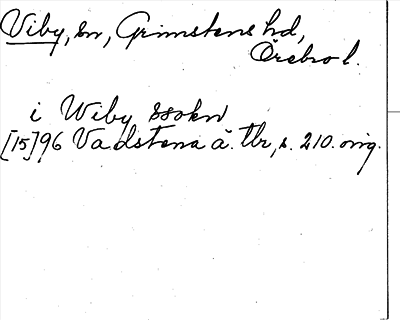 Viby, sn, Grimstens hd,
Örebro l.
i Wiby Ssokn
[15]96 Vadstena ä. tbr, s. 210. orig.